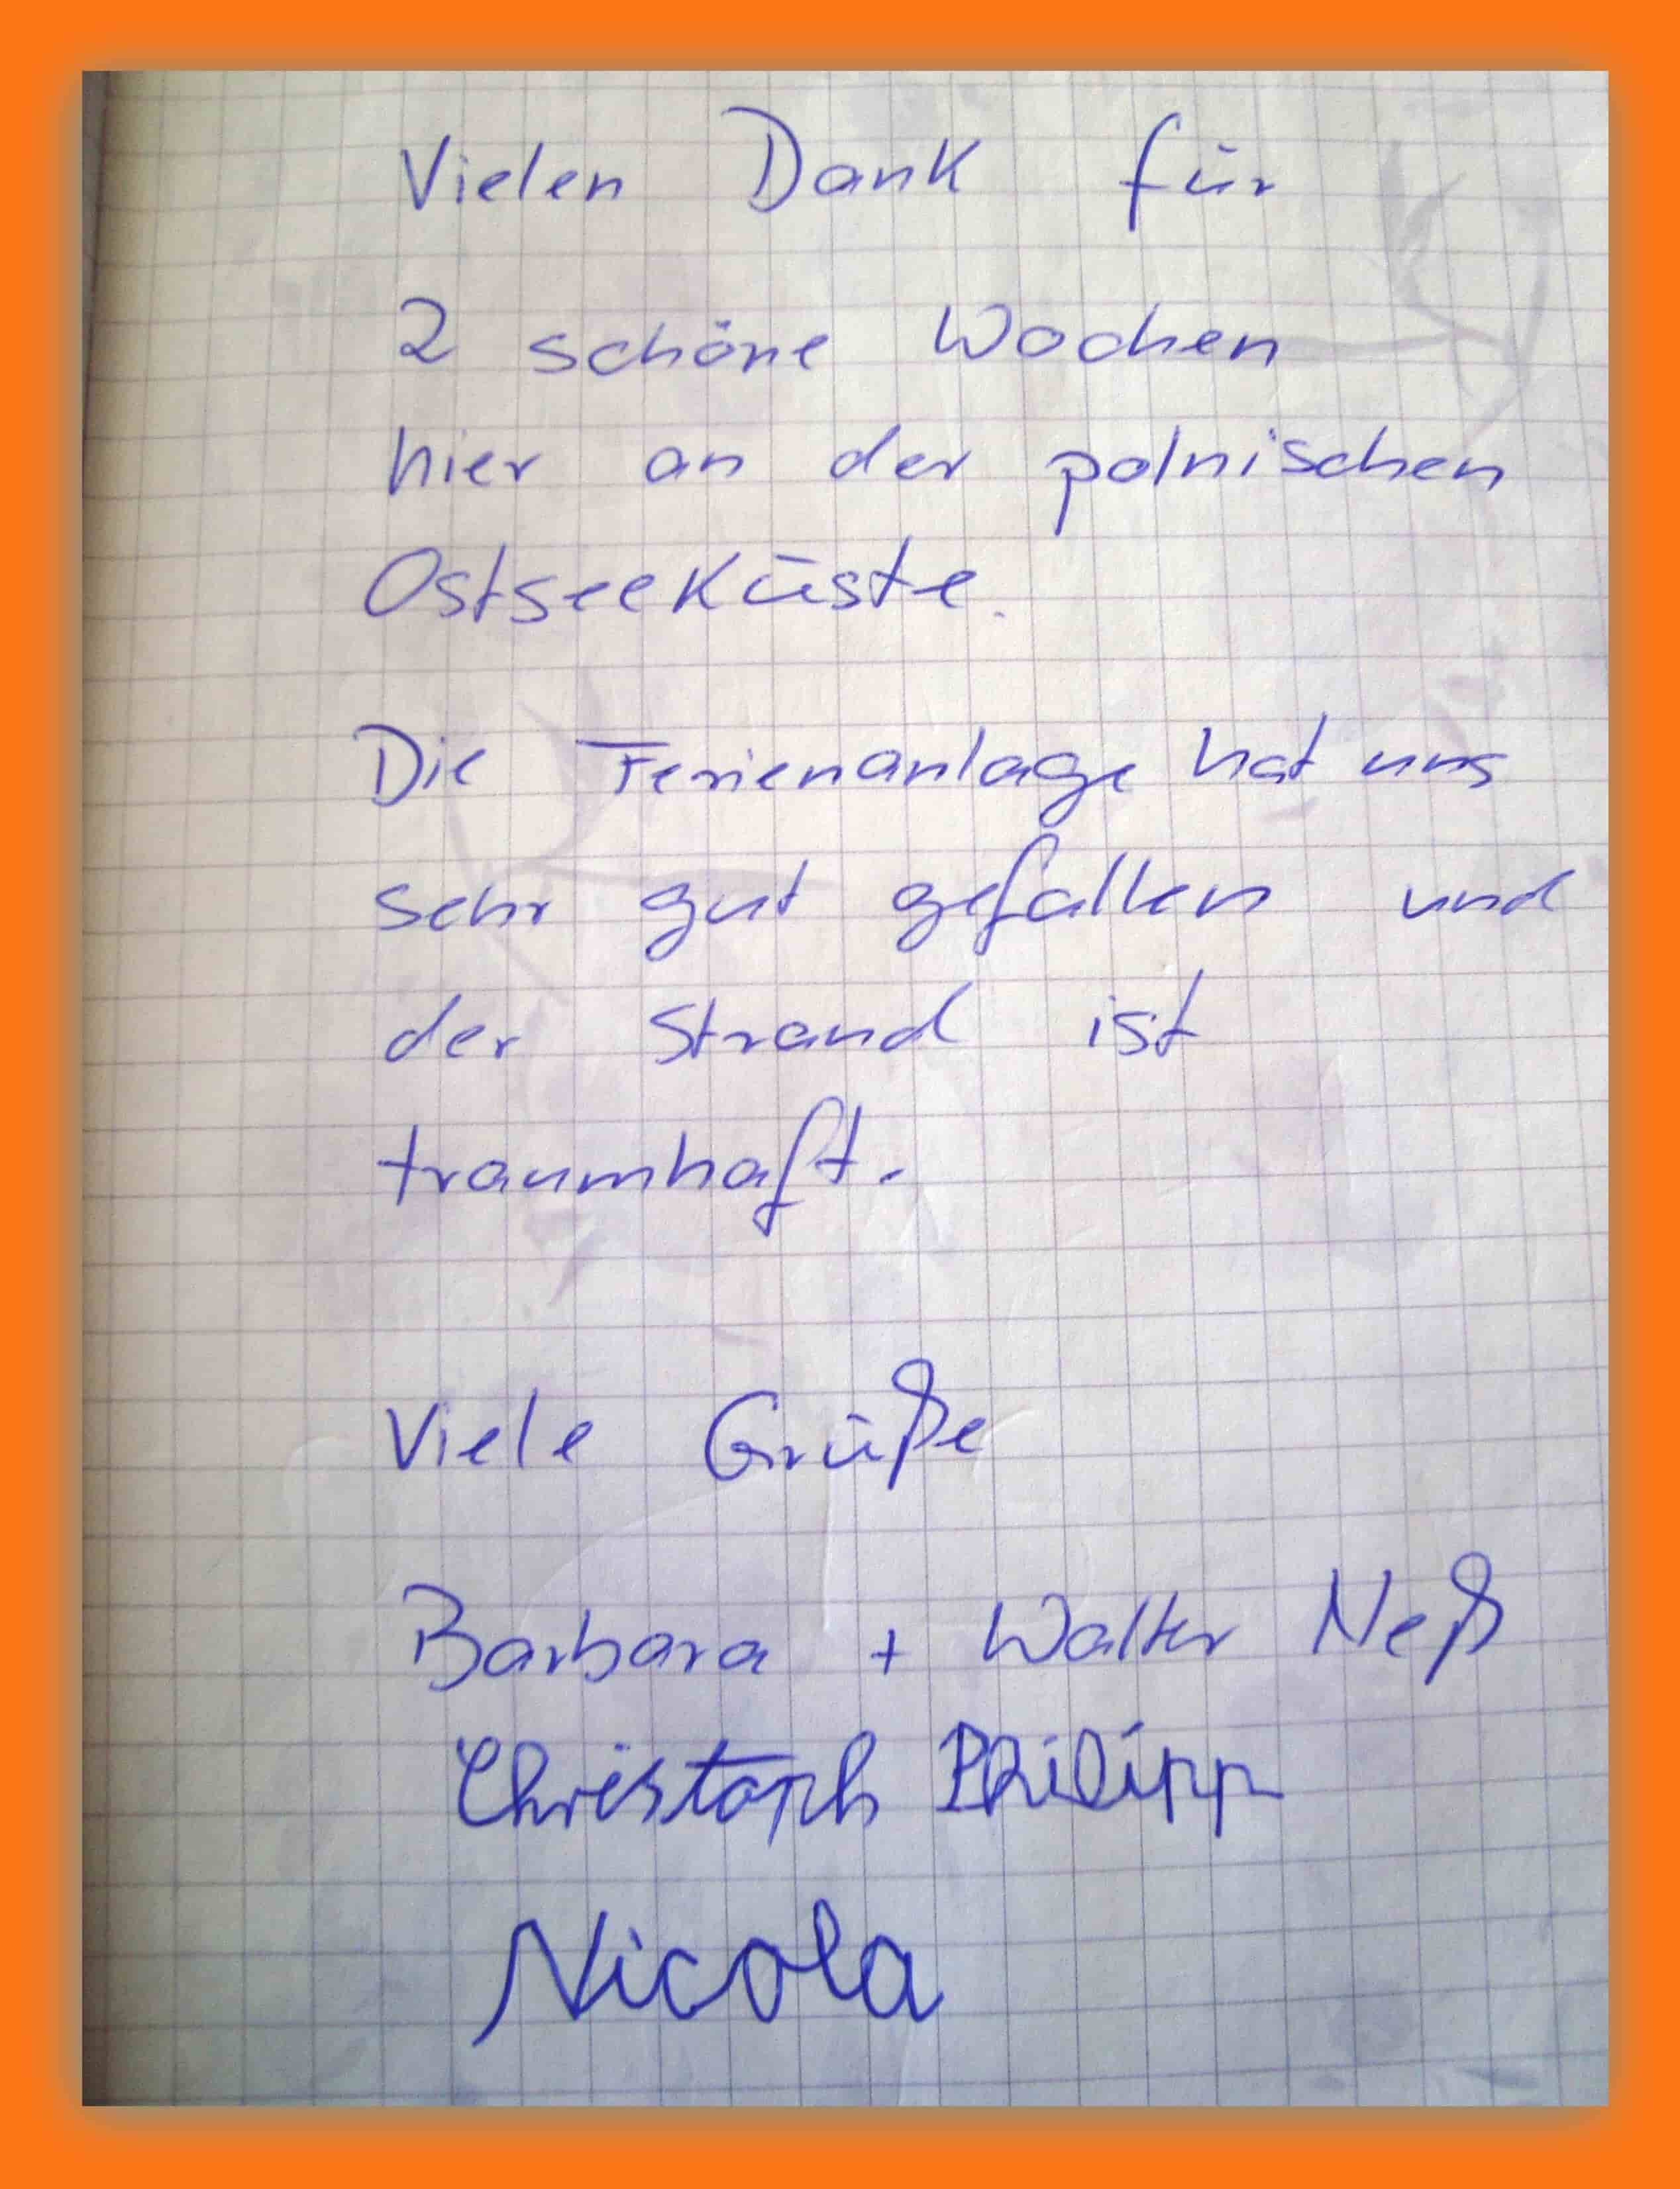 Vielen Dank für
2 schöne Wochen
hier an der polnischen
Ostseeküste.
Die Ferienanlage hat uns
sehr gut gefallen und
der Strand ist
traumhaft.
Viele Grüße
Barbara + Walter Neß
Christoph Philipp
Nicola